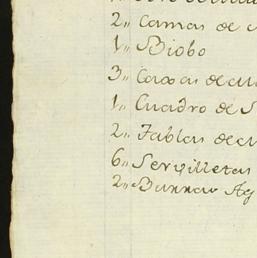 2,, Camas de
1,, Biobo
3,, Caxas de
1,, Cuadro de S
2,, Tablas de
6,, Servilletas
2,,